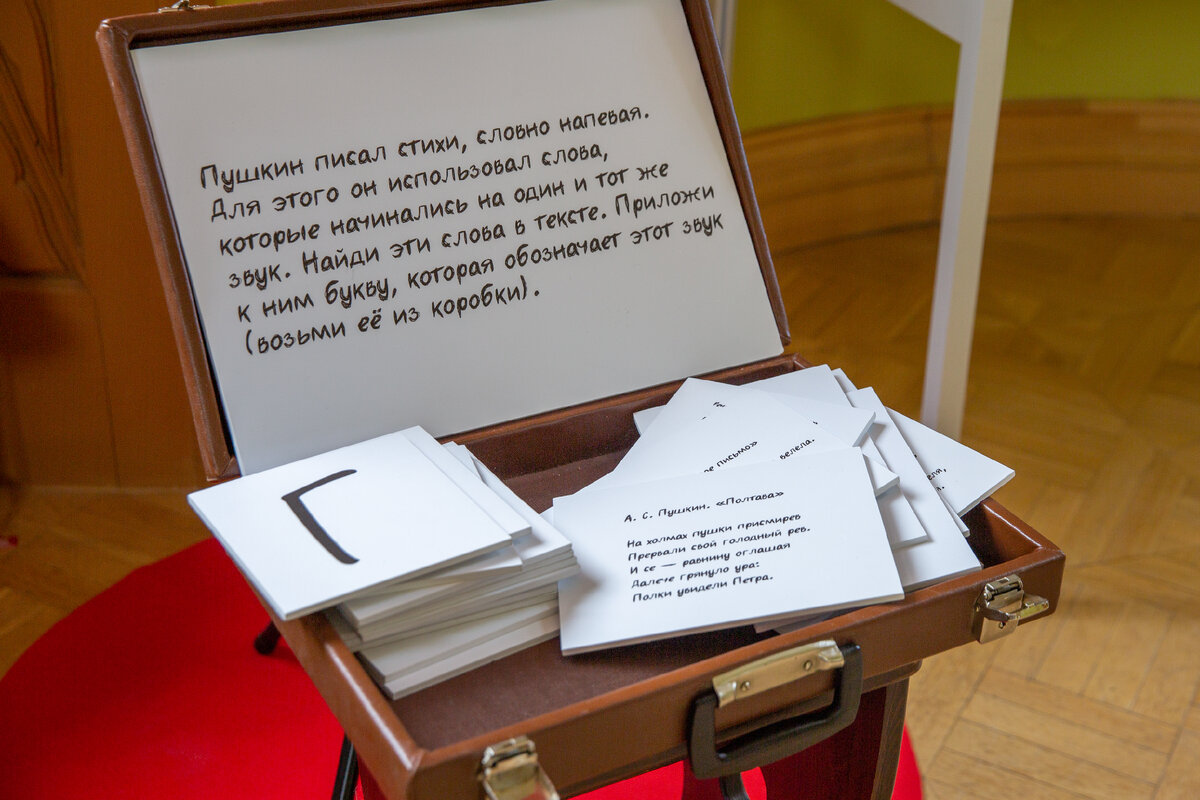 Пушкин писал стихи, словно напевая.
Для этого он использовал слова,
которые начинались на один и тот же
звук. Найди эти слова в тексте. Приложи
к ним букву, которая обозначает этот звук
(возьми её из коробки).
Г
письмо»
велела.
А. С. Пушкин. «Полтава»
На холмах пушки присмирев
Прервали свой голодный рев.
И се — равнину оглашая
Далече грянуло ура:
Полки увидели Петра.